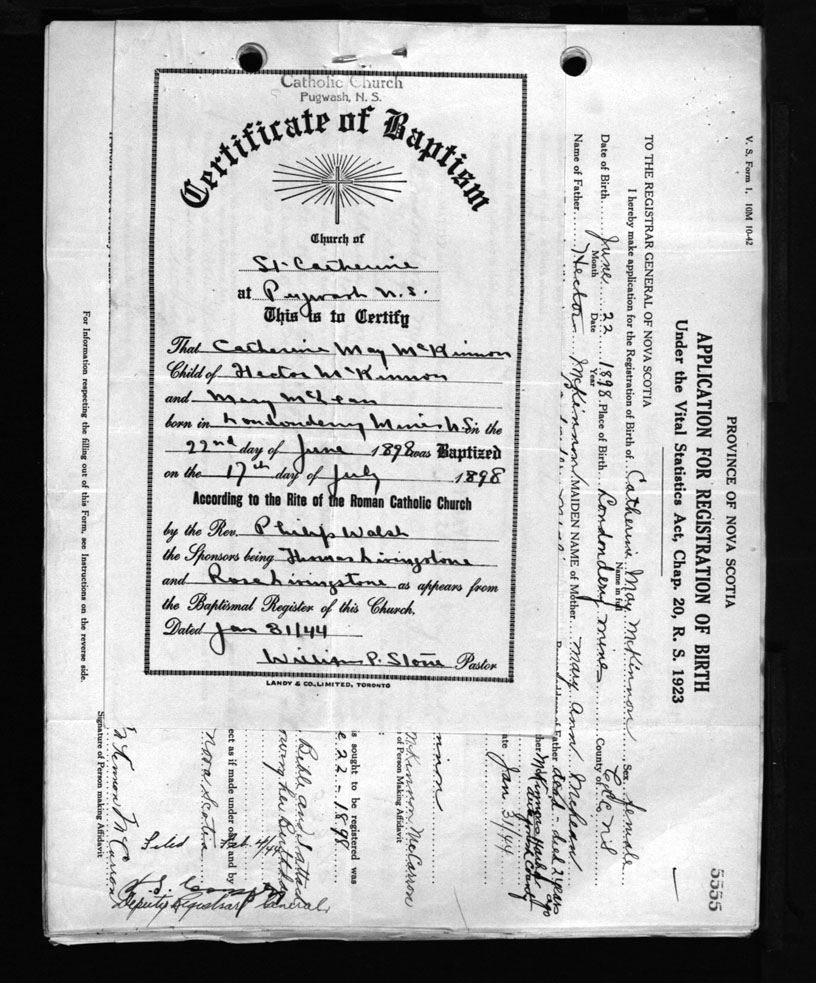 Catholic Church
Pugwash, N. S.
Certificate of Baptism
Church of
St. Catherine
at Pugwash N.S.
This is to Certify
That Catherine May McKinnon
Child of Hector McKinnon
and Mary McLean
born in Londonderry Mines N.S. on the
22nd day of June 1898 was Baptized
on the 17th day of July 1898
According to the Rite of the Roman Catholic Church
by the Rev. Philip Walsh
the Sponsors being Thomas Livingstone
and Rose Livingstone as appears from
the Baptismal Register of this Church.
Dated Jan 31/44
William P. Stone Pastor
LANDY & CO., LIMITED, TORONTO
V. S. Form 1. 10M 10-42
PROVINCE OF NOVA SCOTIA
5555
APPLICATION FOR REGISTRATION OF BIRTH
Under the Vital Statistics Act, Chap. 20, R. S. 1923
TO THE REGISTRAR GENERAL OF NOVA SCOTIA
I hereby make application for the Registration of Birth of Catherine May McKinnon Sex female
Name in full
Date of Birth June 22 1898 Place of Birth Londonderry mines County of Col. NS
Month Date Year
Name of Father Hector McKinnon MAIDEN NAME of Mother Mary Ann McLean
Father dead - died 2 years ago
her McKinnons Harbor
Victoria County
ate Jan 31/44
nnon
McKinnon McCarron
of Person Making Affidavit
is sought to be registered was
e 22 - 1898
Bible and attach
ing her Birthday
ect as if made under oath and by
Nova Scotia
Filed Feb. 4/44
Kinnon McCarron
Signature of Person making Affidavit
Deputy Registrar General
For Information respecting the filling out of this Form, see Instructions on the reverse side.